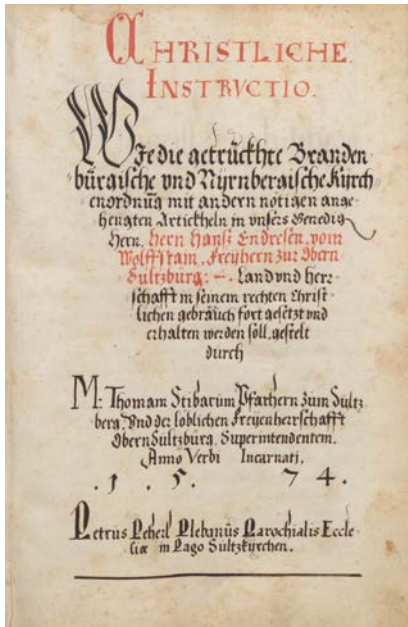 CHRISTLICHE
INSTRVCTIO.
WJe die getrückhte Branden
bürgische vnd Nyrnbergische Kyrch
enordnūg mit andern nötigen ange
hengten Artickheln in vnsers Genedig
Hern, Hern Hansz Endresen, vom
Wolffstain, Freyhern zur Obern
Sultzbürg: —. Land vnd Herr
schafft in seinem rechten Christ
lichen gebraüch fort gesetzt vnd
erhalten werden söll, gestelt
dürch
M: Thomam Stibarüm Pfarhern zum Sültz
berg, Vnd der löblichen Freyenherrschafft
Obern Sültzbürg, Superintendentem.
Anno Verbi Incarnati.
. 1 . 5 . 7 4 .
Petrüs Peherl Plebanüs Parochialis Eccle
siæ in Pago Sültzkyrchen.